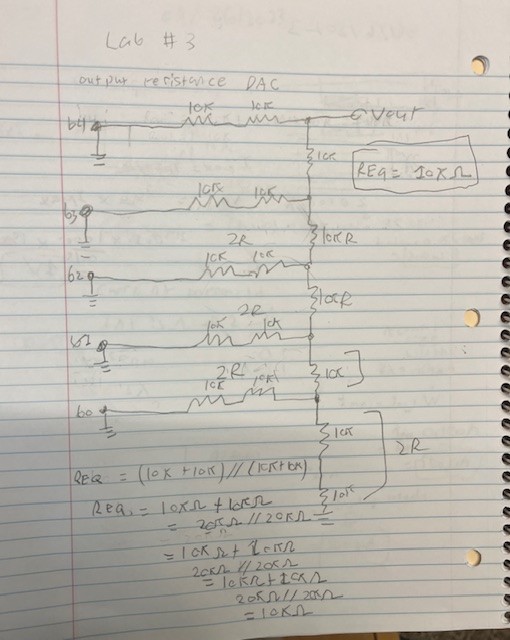 Lab #3
output resistance DAC
10K 10K
b4 Vout
10K
REQ = 10KΩ
10K 10K
b3
10KR
2R
10K 10K
b2
10KR
2R
10K 10K
b1
10K
2R
10K 10K
b0
10K
2R
10K
REQ = (10K + 10K) // (10K+10K)
REQ = 10KΩ + 10KΩ
= 20KΩ // 20KΩ
= 10KΩ + 10KΩ
20KΩ // 20KΩ
= 10KΩ + 10KΩ
20KΩ // 20KΩ
= 10KΩ